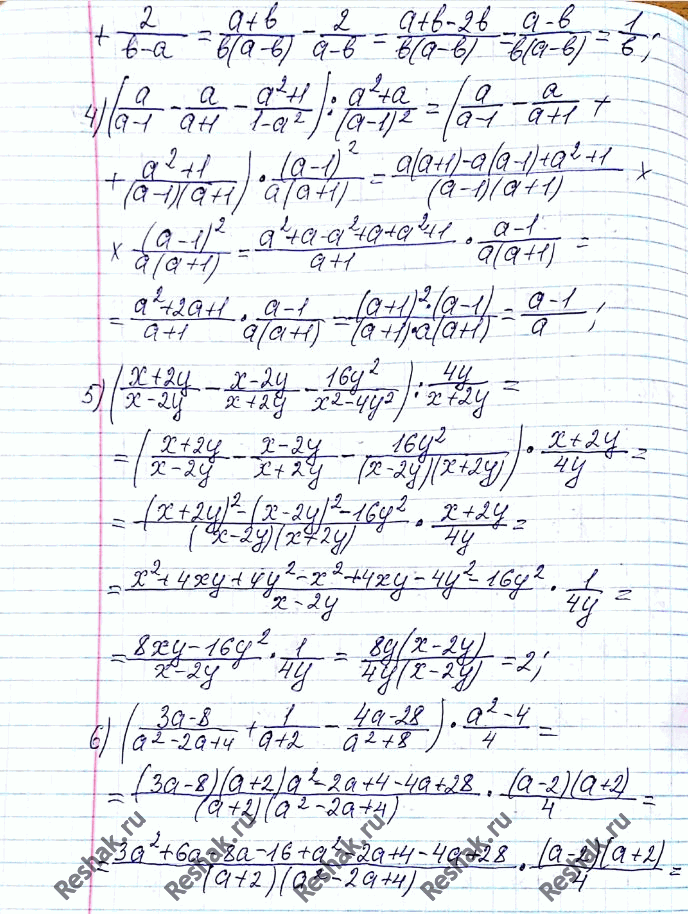 + 2/(в-a) = (a+в)/(в(a-в)) - 2/(a-в) = (a+в-2в)/(в(a-в)) = (a-в)/(в(a-в)) = 1/в;
4) (a/(a-1) - a/(a+1) - (a²+1)/(1-a²)) : (a²+a)/(a-1)² = (a/(a-1) - a/(a+1) +
+ (a²+1)/((a-1)(a+1))) · (a-1)²/(a(a+1)) = (a(a+1)-a(a-1)+a²+1)/((a-1)(a+1)) ×
× (a-1)²/(a(a+1)) = (a²+a-a²+a+a²+1)/(a+1) · (a-1)/(a(a+1)) =
= (a²+2a+1)/(a+1) · (a-1)/(a(a+1)) = ((a+1)²·(a-1))/((a+1)·a(a+1)) = (a-1)/a;
5) ((x+2y)/(x-2y) - (x-2y)/(x+2y) - 16y²/(x²-4y²)) : 4y/(x+2y) =
= ((x+2y)/(x-2y) - (x-2y)/(x+2y) - 16y²/((x-2y)(x+2y))) · (x+2y)/4y =
= ((x+2y)²-(x-2y)²-16y²)/((x-2y)(x+2y)) · (x+2y)/4y =
= (x²+4xy+4y²-x²+4xy-4y²-16y²)/(x-2y) · 1/4y =
= (8xy-16y²)/(x-2y) · 1/4y = 8y(x-2y)/(4y(x-2y)) = 2;
6) ((3a-8)/(a²-2a+4) + 1/(a+2) - (4a-28)/(a²+8)) · (a²-4)/4 =
= ((3a-8)(a+2)a²-2a+4-4a+28)/((a+2)(a²-2a+4)) · ((a-2)(a+2))/4 =
= (3a²+6a-8a-16+a²-2a+4-4a+28)/((a+2)(a²-2a+4)) · ((a-2)(a+2))/4 =
Reshak.ru Reshak.ru Reshak.ru Reshak.ru Reshak.ru